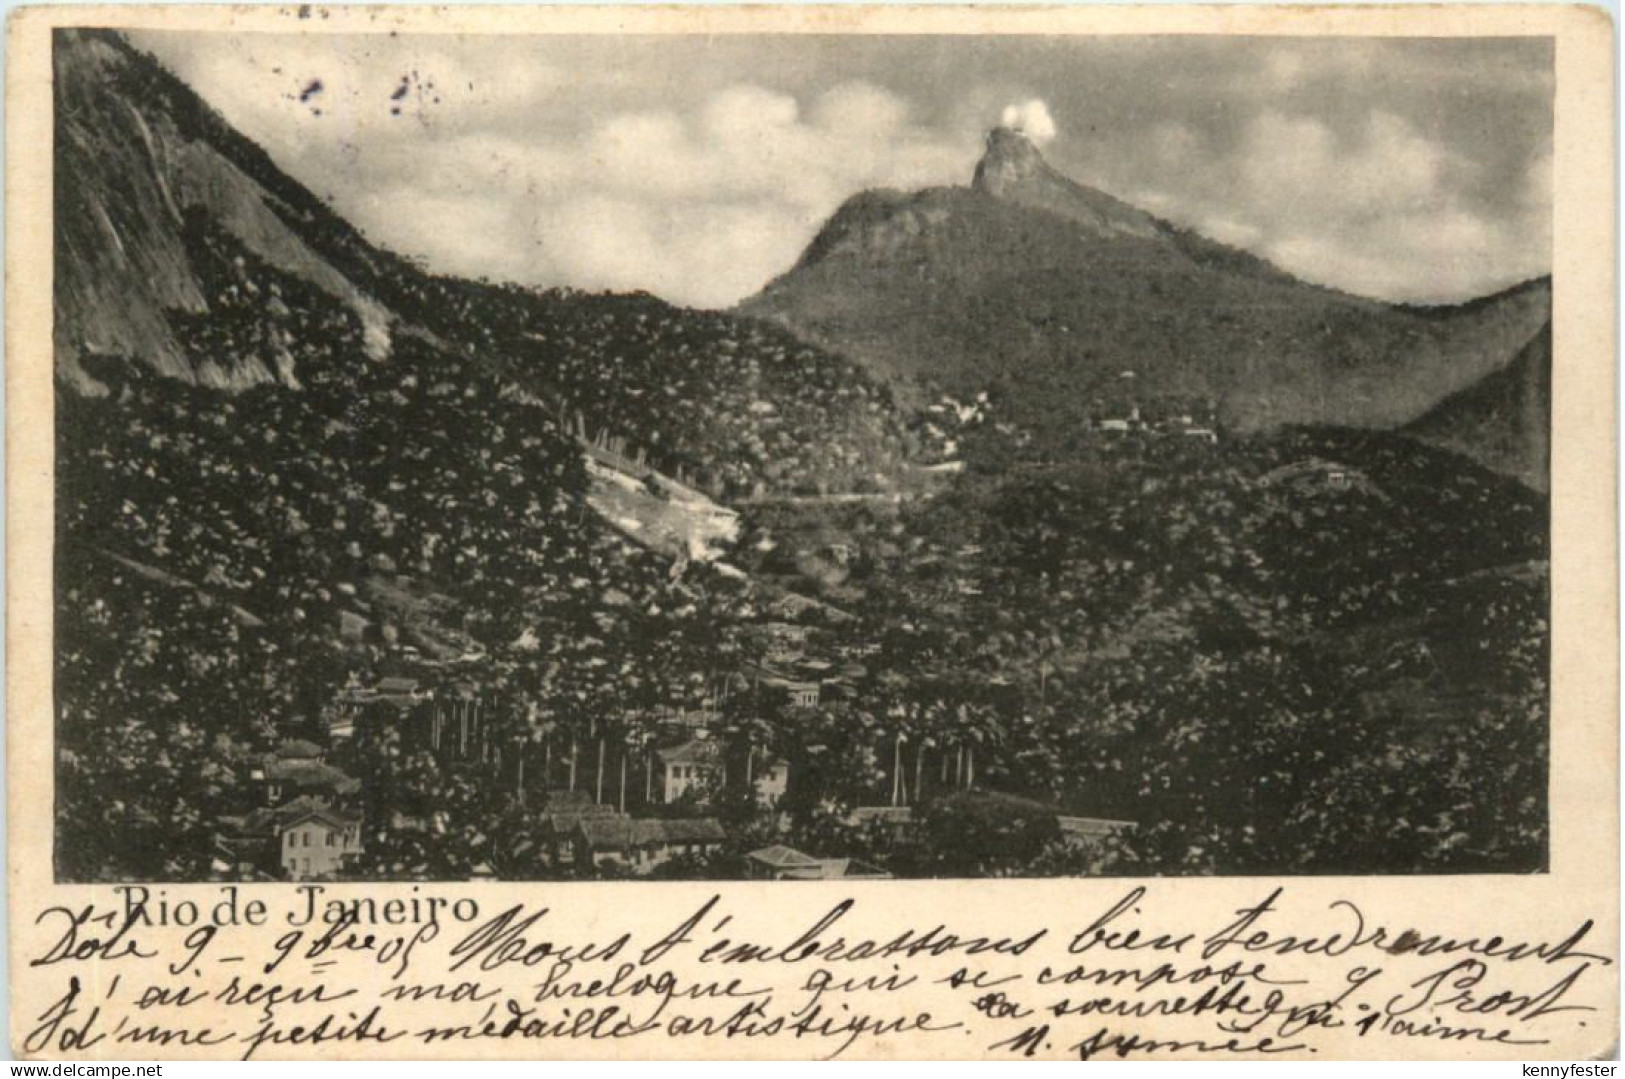 Rio de Janeiro
Dôle 9 - 9bre 05 Nous t'embrassons bien tendrement
J'ai reçu ma breloque qui se compose
d'une petite médaille artistique. Ta sœurette qui t'aime
delcampe.net
kennyfester